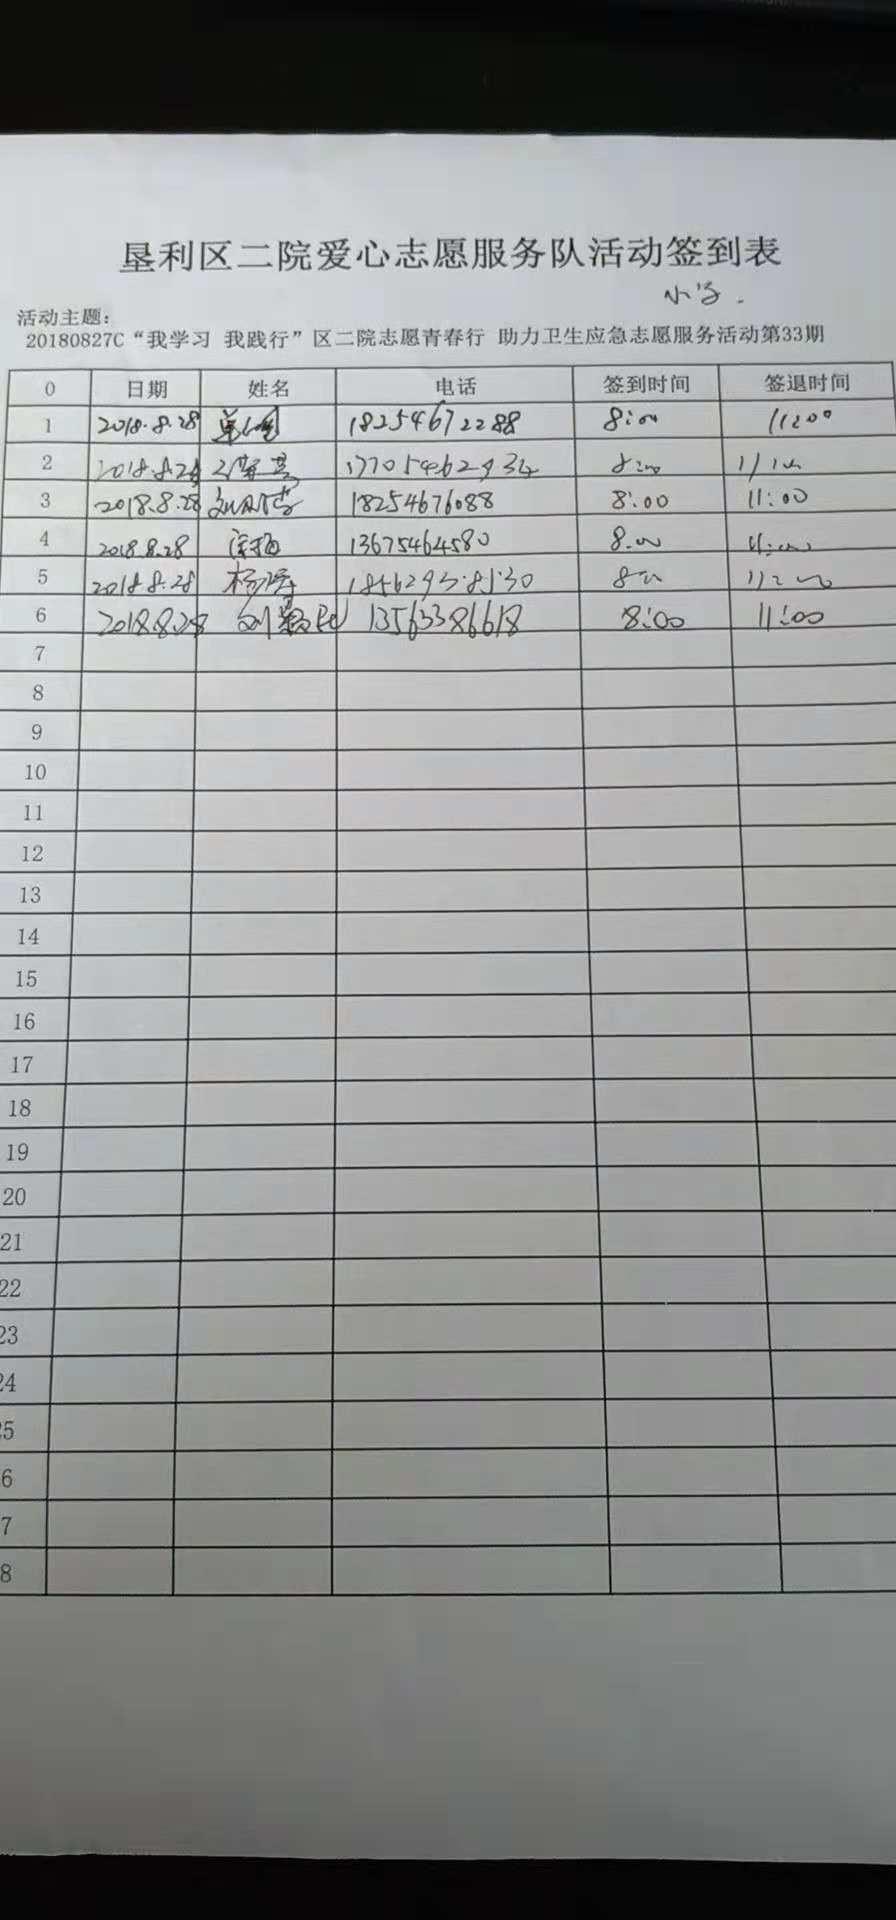 垦利区二院爱心志愿服务队活动签到表
活动主题：
20180827C“我学习 我践行”区二院志愿青春行 助力卫生应急志愿服务活动第33期
0 日期 姓名 电话 签到时间 签退时间
1 2018.8.28 18254672288 8:00 11:00
2 2018.8.28 17705462934 8:00
3 2018.8.28 18254676088 8:00 11:00
4 2018.8.28 13675464580 8:00 11:00
5 2018.8.28 杨 8:00 11:00
6 2018.8.28 刘 13563386618 8:00 11:00
7
8
9
10
11
12
13
14
15
16
17
18
19
20
21
22
23
24
25
6
7
8